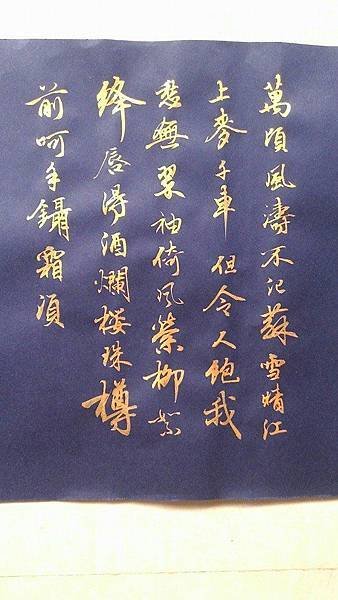 萬頃風濤不記蘇雪晴江
上麥千車但令人飽我
愁無翠袖倚風縈柳絮
絳唇得酒爛櫻珠樽
前呵手鑷霜須